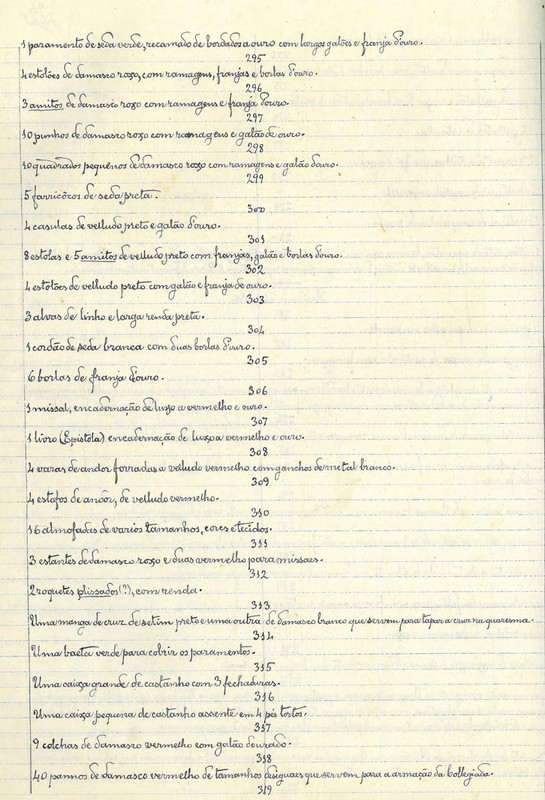 1 paramento de seda verde, recamado de bordados a ouro com largos galões e franja d'ouro.
295
4 estolões de damasco roxo, com ramagens, franjas e borlas d'ouro.
296
3 amitos de damasco roxo com ramagens e franja d'ouro.
297
10 punhos de damasco roxo com ramagens e galão de ouro.
298
10 quadrados pequenos de damasco roxo com ramagens e galão d'ouro.
299
5 farricôcos de seda preta.
300
4 casulas de velludo preto e galão d'ouro.
301
8 estolas e 5 amitos de velludo preto com franjas, galão e borlas d'ouro.
302
4 estolões de velludo preto com galão e franja de ouro.
303
3 alvas de linho e larga renda preta.
304
1 cordão de seda branca com duas borlas d'ouro.
305
6 borlas de franja d'ouro.
306
1 missal, encadernação de luxo a vermelho e ouro.
307
1 livro (Epistola) encadernação de luxo a vermelho e ouro.
308
4 varas de andor forradas a velludo vermelho com ganchos de metal branco.
309
4 estofos de andôr, de velludo vermelho.
310
16 almofadas de varios tamanhos, cores e tecidos.
311
3 estantes de damasco roxo e duas vermelho para missaes.
312
2 roquetes plissados (?), com renda.
313
Uma manga de cruz de setim preto e uma outra de damasco branco que servem para tapar a cruz na quaresma.
314
Uma baeta verde para cobrir os paramentos.
315
Uma caixa grande de castanho com 3 fechaduras.
316
Uma caixa pequena de castanho assente em 4 pés tortos.
317
9 colchas de damasco vermelho com galão dourado.
318
40 pannos de damasco vermelho de tamanhos desiguaes que servem para a armação da Collegiada.
319